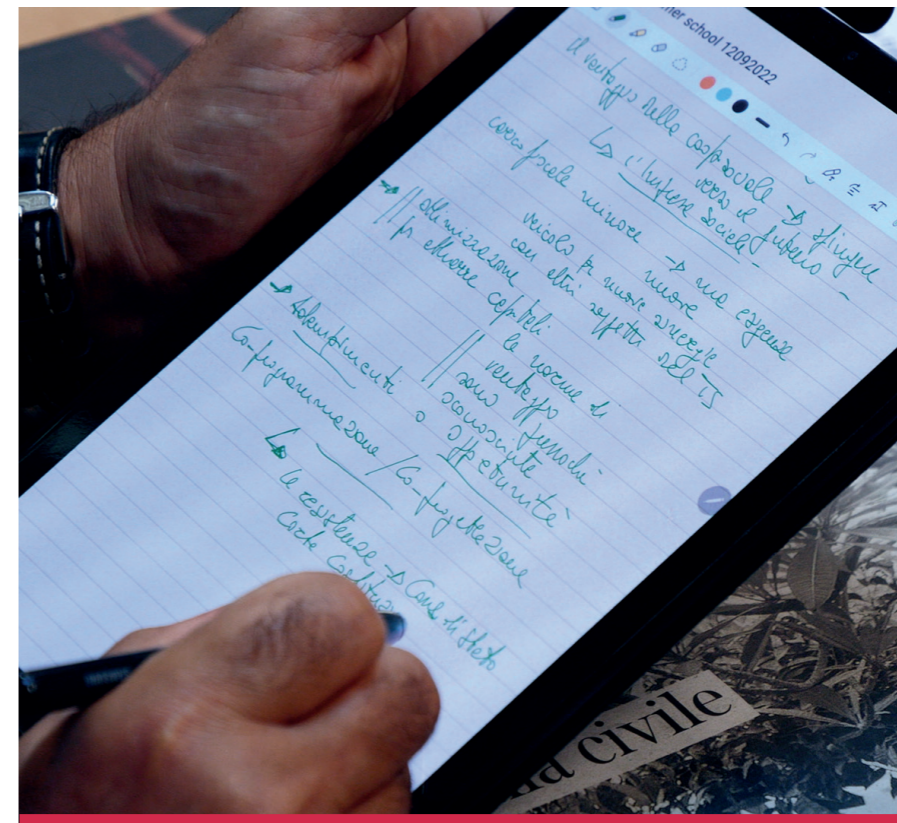 ner school 12092022
Il vantaggio delle cooperative → spingere
verso il futuro -
↳ l'Impresa Sociale -
carico fiscale minore → ma esigenze
nuove
veicolo per nuove sinergie
con altri soggetti del TS
→ // ottimizzazione
// per attrarre capitali
le norme di
// vantaggio
// sono pressoché
sconosciute
→ Adempimenti o opportunità
Co-programmazione / Co-progettazione
↳ le resistenze → Cons. di Stato
Corte
civile